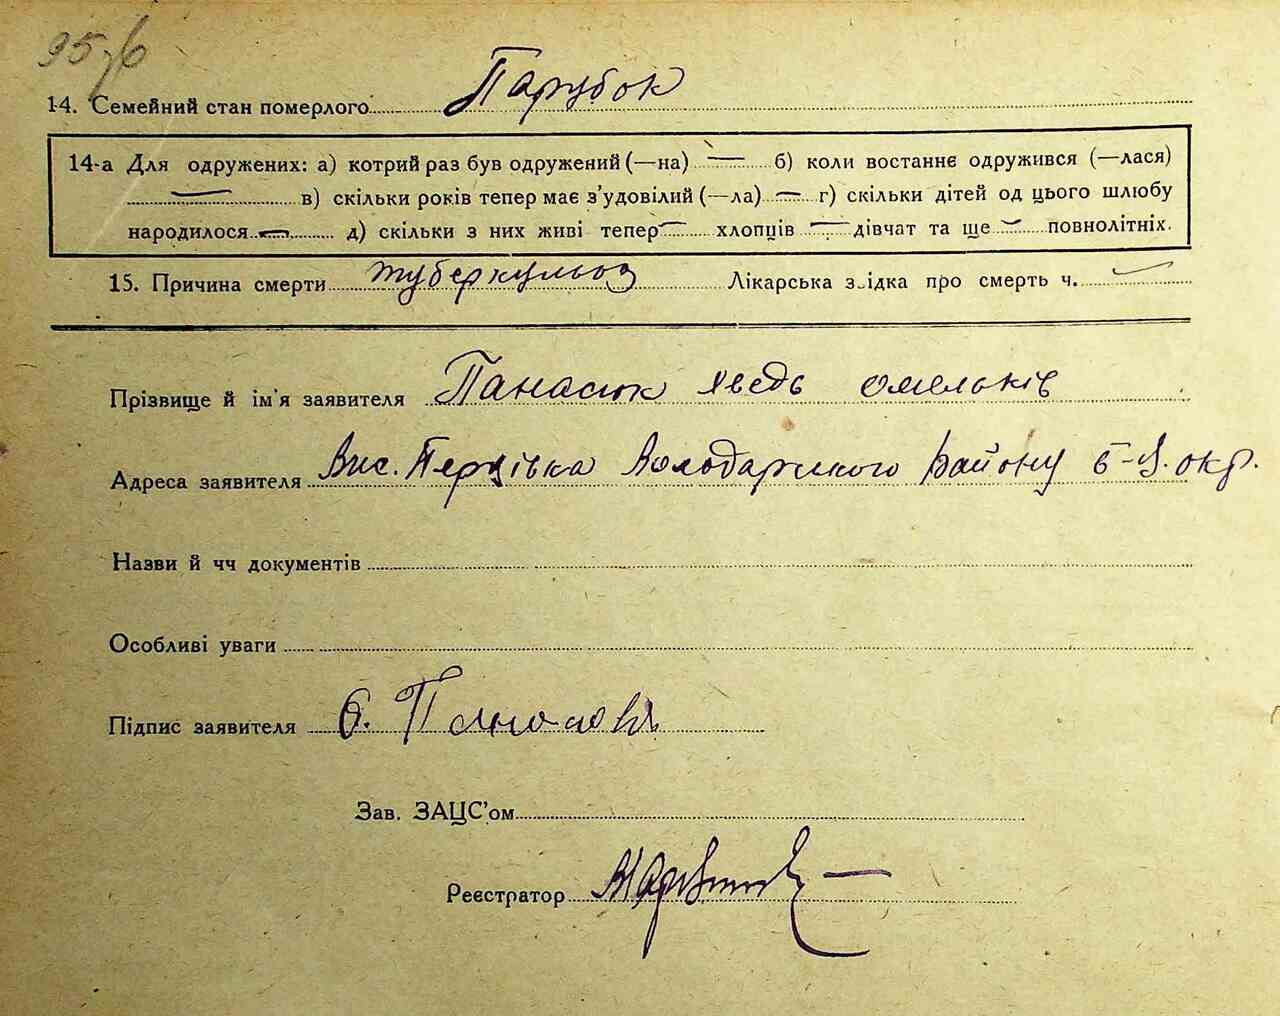 95 6
14. Семейний стан померлого Парубок
14-а Для одружених: а) котрий раз був одружений (—на) — б) коли востаннє одружився (—лася)
— в) скільки років тепер має з’удовілий (—ла) — г) скільки дітей од цього шлюбу
народилося — д) скільки з них живі тепер — хлопців — дівчат та ще — повнолітніх.
15. Причина смерти туберкульоз Лікарська з ідка про смерть ч. —
Прізвище й ім'я заявителя Панасюк Явєдь Омельків
Адреса заявителя Вис. Перцівка Володарського Району Б-Ц. окр.
Назви й чч документів
Особливі уваги
Підпис заявителя
Зав. ЗАЦС’ом
Реєстратор